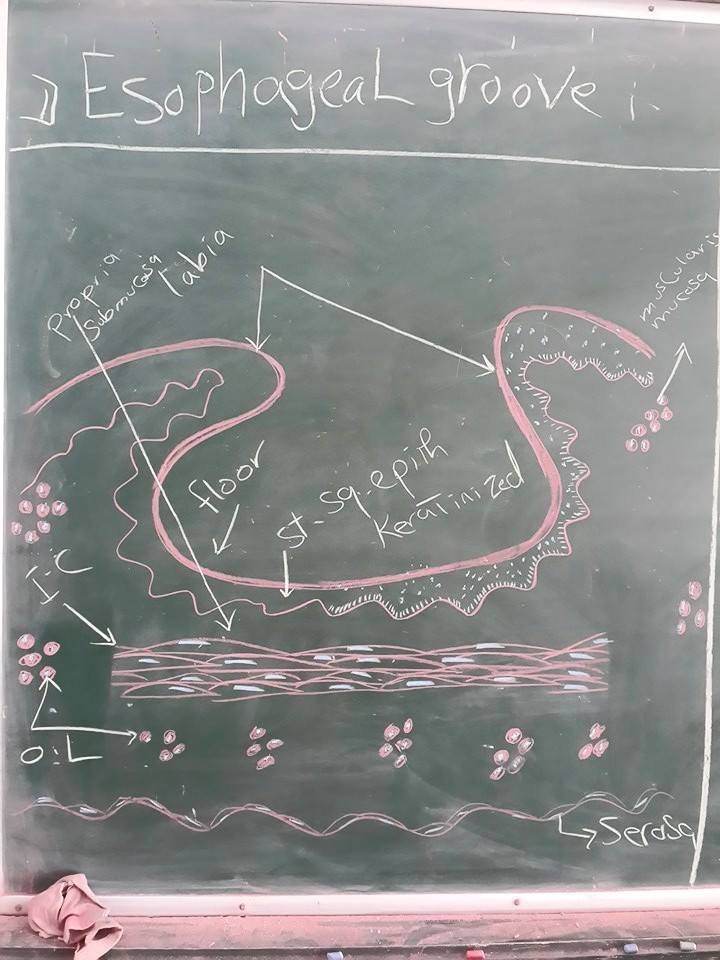 Esophageal groove :-
Labia
Propria
submucosa
muscularis
mucosa
floor
st-sq-epith
Keratinized
I-C
O:L
Serosa